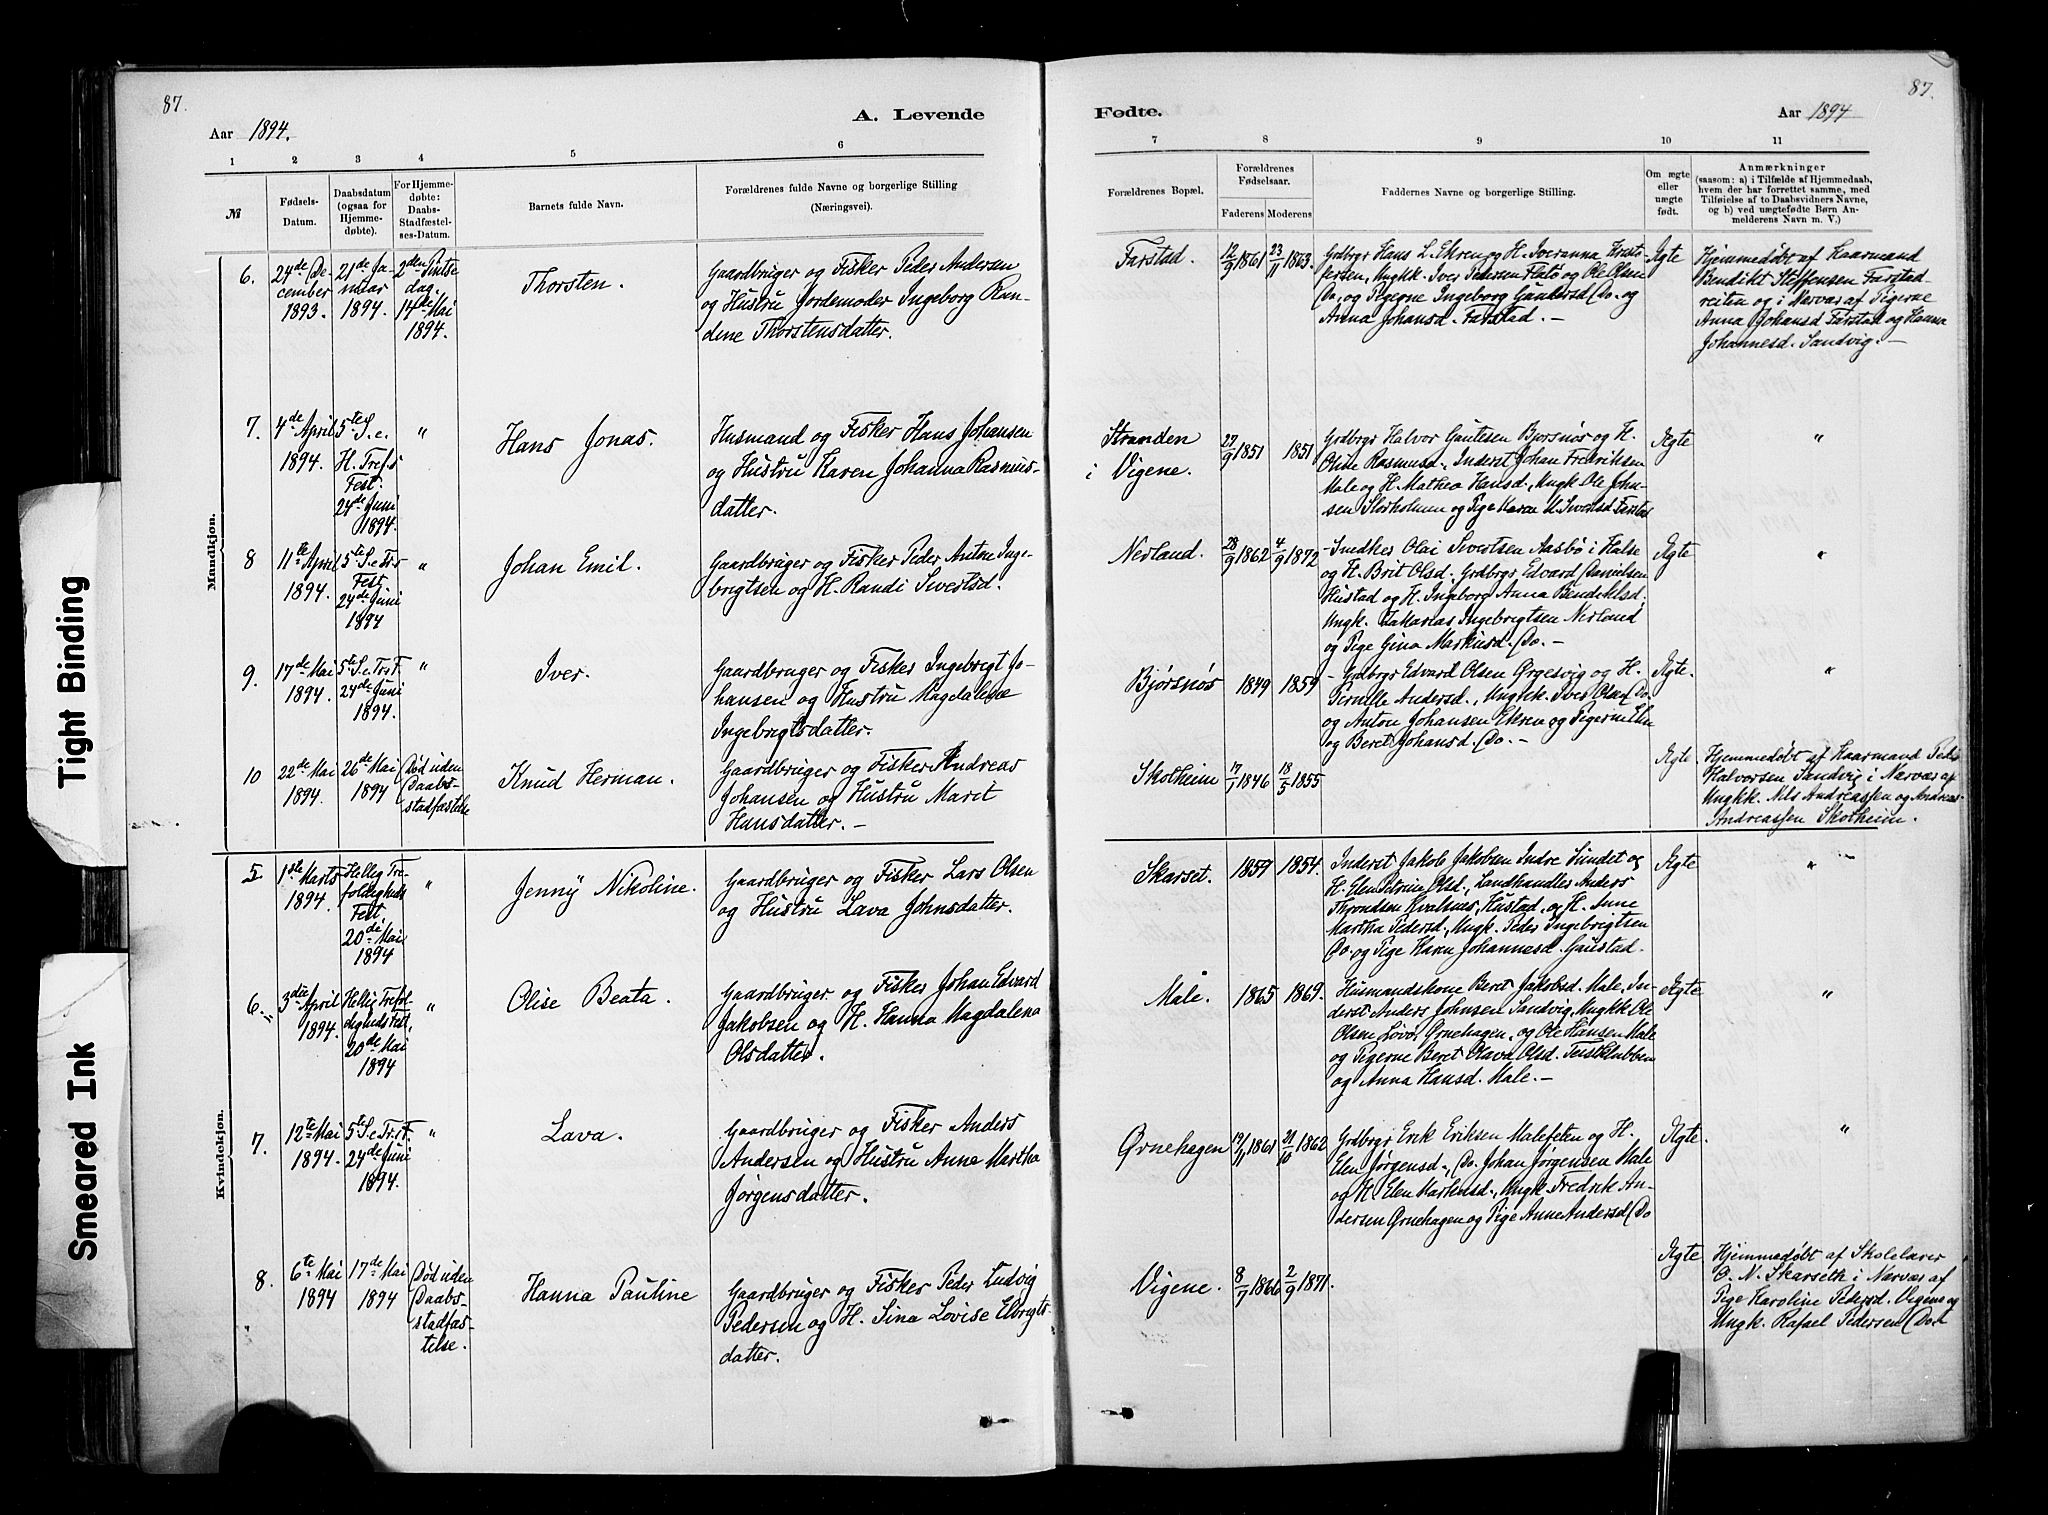 87.
Aar 1894.
A. Levende
1 2 3 4 5 6
№
Fødsels-
Datum.
Daabsdatum
(ogsaa for
Hjemme-
døbte).
For Hjemme-
døbte:
Daabs-
Stadfæstel-
ses-Datum.
Barnets fulde Navn.
Forældrenes fulde Navne og borgerlige Stilling
(Næringsvei).
Mandkjøn.
6.
24de De-
cember
1893.
21de Ja-
nuar
1894.
2den Pintse
dag.
14de Mai
1894.
Thorsten.
Gaardbruger og Fisker Peder Andersen
og Hustru Jordemoder Ingeborg Ran-
dene Thorstensdatter.
7.
4de April
1894.
5te S. e.
H. Tref.s
Fest.
24de Juni
1894.
"
Hans Jonas.
Husmand og Fisker Hans Johansen
og Hustru Karen Johanna Rasmus-
datter.
8
11te April
1894.
5te S. e Tr.s
Fest
24de Juni
1894
"
Johan Emil.
Gaardbruger og Fisker Peder Anton Inge-
brigtsen og H. Randi Sivertsd.
9.
17de Mai
1894.
5te S. e. Tr. F.
24de Juni
1894.
"
Iver.
Gaardbruger og Fisker Ingebrigt Jo-
hansen og Hustru Magdalene
Ingebrigtsdatter.
10
22de Mai
1894.
26de Mai
1894
Død uden
Daabs-
stadfæstelse
Knud Herman.
Gaardbruger og Fisker Andreas
Johansen og Hustru Marit
Hansdatter. —
Kvindekjøn.
5
1ste Marts
1894.
Hellig Tre-
foldigheds
Fest.
20de Mai
1894
"
Jenny Nikoline.
Gaardbruger og Fisker Lars Olsen
og Hustru Lava Johnsdatter.
6.
3die April
1894.
Hellig Trefol-
digheds Fest,
20de Mai
1894
"
Olise Beata.
Gaardbruger og Fisker Johan Edvard
Jakobsen og H. Hanna Magdalena
Olsdatter.
7.
12te Mai
1894.
5te S. e Tr. F.
24de Juni
1894.
"
Lava.
Gaardbruger og Fisker Anders
Andersen og Hustru Anne Martha
Jørgensdatter.
8.
6te Mai
1894
17de Mai
1894
Død uden
Daabs-
stadfæs-
telse.
Hanna Pauline
Gaardbruger og Fisker Peder Ludvig
Pedersen og H. Sina Lovise Elbrigts-
datter.
Fødte.
Aar 1894
87.
7 8 9 10 11
Forældrenes Bopæl.
Forældrenes
Fødselsaar.
Faderens Moderens
Faddernes Navne og borgerlige Stilling.
Om ægte
eller
uægte
født.
Anmærkninger
(saasom: a) i Tilfælde af Hjemmedaab,
hvem der har forrettet samme, med
Tilføielse af to Daabsvidners Navne,
og b) ved uægtefødte Børn An-
melderens Navn m. V.)
Farstad.
12/9 1861
23/11 1863.
Grdbrgr Hans L. Ekren og H. Iveranna Krist-
fersen, Ungkk. Iver Pedersen Flatø og Ole Olsen
Do, og Pigerne Ingeborg Gunnersd Do. og
Anna Johansd. Farstad. —
Ægte
Hjemmedøbt af Kaarmand
Bendikt Steffensen Farstad-
reiten og i Nærvær af Pigerne
Anna Johansd Farstad og Hanna
Johannesd. Sandvig. —
Stranden
i Vigene.
27/9 1851
1851
Grdbrgr Halvor Gautesen Bjørsnøs og H.
Oline Rasmusd., Inderst Johan Fredriksen
Male og H. Mathea Hansd., Ungk Ole John-
sen Storholmen og Pige Karen M. Sivertsd Farstad
Ægte
"
Nerland.
28/9 1862
4/9 1872
— Smedkes Olai Sivertsen Aasbø i Halse
og H. Brit Olsd., Grdbrgr Edvard Danielsen
Hustad og H. Ingeborg Anna Bendiktsd.
Ungk. Zakarias Ingebrigtsen Nerland
og Pige Gina Markusd. Do. —
Ægte
"
Bjørsnøs
1849
1859
— Grdbrgr Edvard Olsen Ørgesvig og H.
Pernille Andersd., Ungkk. Iver Olsen Do.
og Anton Johansen Ekren og Pigerne Elen
og Beret Johansd. Do. —
Ægte.
"
Skotheim
17/1 1846
18/5 1855
Ægte
Hjemmedøbt af Kaarmand Peder
Halvorsen Sandvig i Nærvær af
Ungkk. Nils Andreassen og Andreas
Andreassen Skotheim.
Skarset.
1859
1854.
Inderst Jakob Jakobsen Indre Sundet og
H. Elen Petrine Olsd., Landhandler Anders
Throndsen Kvalnes, Hustad, og H. Anne
Martha Pedersd., Ungk. Peder Ingebrigtsen
Do. og Pige Karn Johannesd. Gaustad.
Ægte
"
Male.
1865
1869.
Husmandskone Beret Jakobsd. Male, In-
derst Anders Johnsen Sandvig, Ungkk Ole
Olsen Løvø, Ørnehagen, og Ole Hansen Male
og Pigerne Beret Olava Olsd. Teistklubben
og Anna Hansd. Male. —
Ægte
"
Ørnehagen
19/11 1861
31/10 1862
Grdbrgr Erik Eriksen Malefeten og H.
Elen Jørgensd., Do. Johan Jørgensen Male
og H. Elen Markusd., Ungk. Fredrik An-
dersen Ørnehagen og Pige Anne Andersd Do
Ægte.
"
Vigene.
8/7 1866
2/9 1871.
Ægte
Hjemmedøbt af Skolelærer
O. N. Skarseth i Nærvær af
Pige Karoline Pedersd. Vigene og
Ungk. Rafael Pedersen Do.
Tight Binding
Smeared Ink